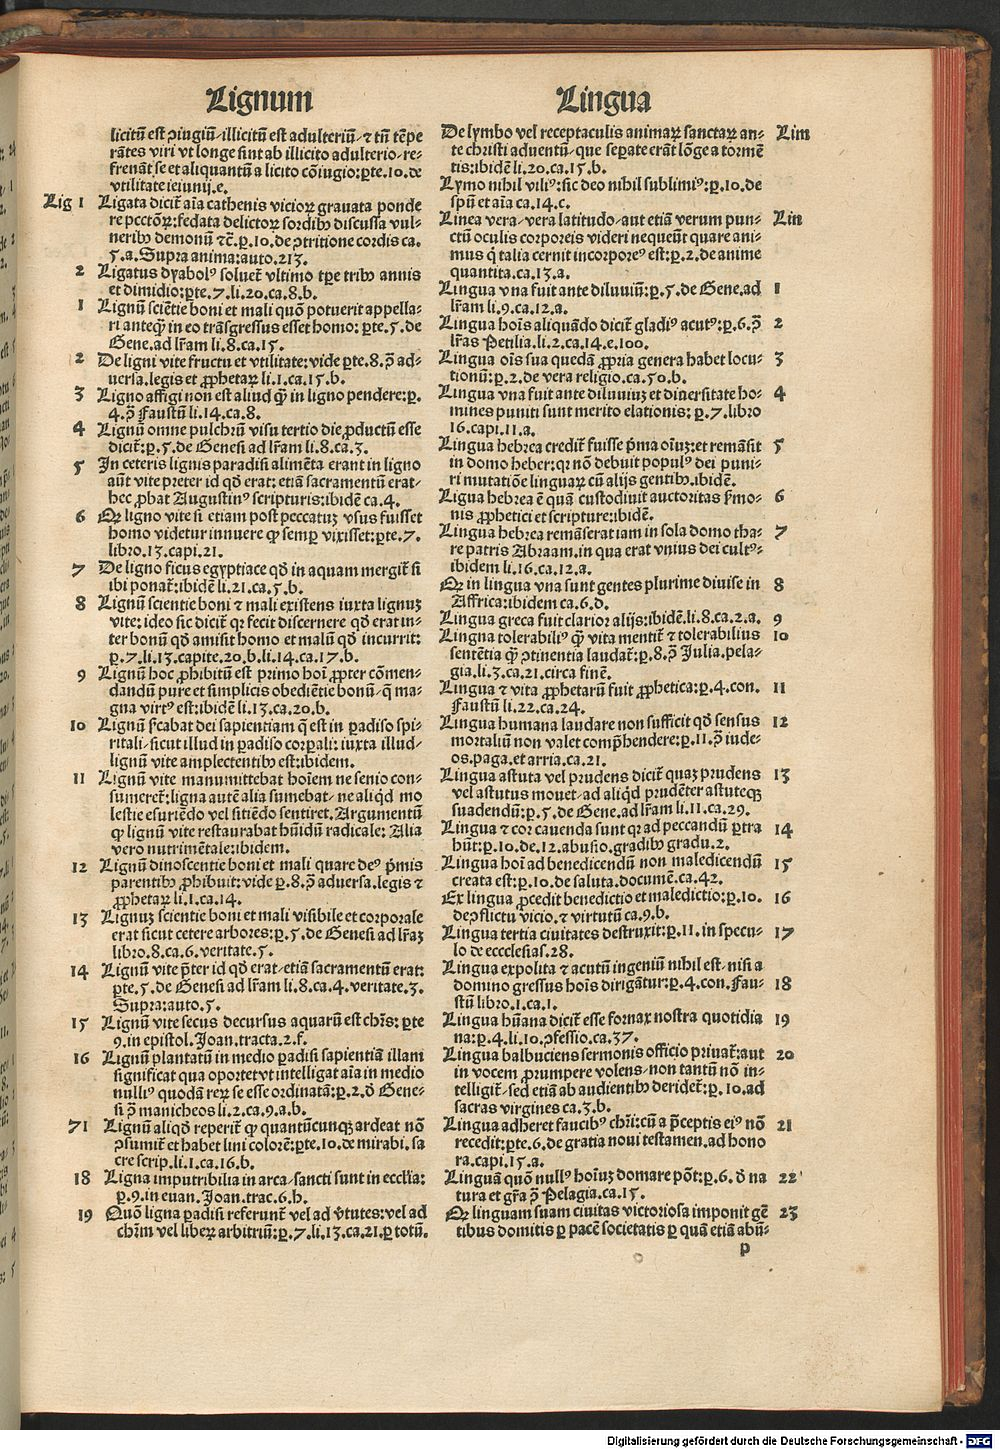 Lignum
licitū est ꝯiugiū/illicitū est adulteriū/⁊ tn̄ tēpe
rātes viri vt longe sint ab illicito adulterio/re-
frenāt se et aliquantū a licito cōiugio:ꝑte.10.de
vtilitate ieiunij.e.
Lig 1 Ligata dicit᷑ aīa cathenis vicioꝝ grauata ponde
re pcctōꝝ:fedata delictoꝝ sordibꝰ discussa vul-
neribꝰ demonū ⁊c̄.ꝑ.10.de ꝯtritione cordis ca.
5.a.Supra anima:auto.213.
2 Ligatus dyabolꝰ soluet᷑ vltimo tꝑe tribꝰ annis
et dimidio:ꝑte.7.li.20.ca.8.b.
1 Lignū sciētie boni et mali quō potuerit appella-
ri anteꝙ̄ in eo trāsgressus esset homo: ꝑte.5.de
Gene.ad lr̄am li.8.ca.15.
2 De ligni vite fructu et vtilitate:vide ꝑte.8.ꝯ̄ ad-
uersa.legis et ꝓphetaꝝ li.1.ca.15.b.
3 Ligno affigi non est aliud ꝙ̄ in ligno pendere:ꝑ.
4.ꝯ̄ Faustū li.14.ca.8.
4 Lignū omne pulchrū visu tertio die ꝓductū esse
dicit᷑:ꝑ.5.de Genesi ad lr̄am li.8.ca.3.
5 In ceteris lignis paradisi alimēta erant in ligno
aūt vite preter id qd̄ erat: etiā sacramentū erat/
hec ꝓbat Augustinꝰ scripturis:ibidē ca.4.
6 Qꝛ ligno vite si etiam post peccatuꝫ vsus fuisset
homo videtur innuere ꝙ semꝑ vixisset:ꝑte.7.
libro.13.capi.21.
7 De ligno ficus egyptiace qd̄ in aquam mergit᷑ si
ibi ponat᷑:ibidē li.21.ca.5.b.
8 Lignū scientie boni ⁊ mali existens iuxta lignuꝫ
vite: ideo sic dicit᷑ qꝛ fecit discernere qd̄ erat in-
ter bonū qd̄ amisit homo et malū qd̄ incurrit:
ꝑ.7.li.13.capite.20.b.li.14.ca.17.b.
9 Lignū hoc ꝓhibitū est primo hoī ꝓpter cōmen-
dandū pure et simplicis obediētie bonū/q̄ ma-
gna virtꝰ est:ibidē li.13.ca.20.b.
10 Lignū s̄cabat dei sapientiam q̄ est in ꝑadiso spi-
ritali/sicut illud in ꝑadiso corꝑali: iuxta illud/
lignū vite amplectentibꝰ est:ibidem.
11 Lignū vite manumittebat hoīem ne senio con-
sumeret᷑:ligna autē alia sumebat/ne aliqd̄ mo
lestie esuriēdo vel sitiēdo sentiret.Argumentū
ꝙ lignū vite restaurabat hūidū radicale: Alia
vero nutrimētale:ibidem.
12 Lignū dinoscentie boni et mali quare deꝰ p̄mis
parentibꝰ ꝓhibuit: vide ꝑ.8.ꝯ̄ aduersa.legis ⁊
ꝓphetaꝝ li.1.ca.14.
13 Lignuꝫ scientie boni et mali visibile et corporale
erat sicut cetere arbores:ꝑ.5.de Genesi ad lr̄aꝫ
libro.8.ca.6.veritate.5.
14 Lignū vite p̄ter id qd̄ erat/etiā sacramentū erat:
ꝑte.5.de Genesi ad lr̄am li.8.ca.4.veritate.3.
Supra:auto.5.
15 Lignū vite secus decursus aquarū est chr̄s: ꝑte
9.in epistol.Joan.tracta.2.f.
16 Lignū plantatū in medio ꝑadisi sapientiā illam
significat qua oportet vt intelligat aīa in medio
nulliꝰ quodā reꝝ se esse ordinatā:ꝑ.2.ō Gene-
si ꝯ̄ manicheos li.2.ca.9.a.b.
71 Lignū aliqd̄ reperit᷑ ꝙ quantūcunqꝫ ardeat nō
ꝯsumit᷑ et habet lini colorē:ꝑte.10.de mirabi.sa
cre scrip.li.1.ca.16.b.
18 Ligna imputribilia in arca/sancti sunt in eccl̄ia:
ꝑ.9.in euan.Joan.trac.6.h.
19 Quō ligna ꝑadisi referunt᷑ vel ad v̄tutes:vel ad
chr̄m vel libeꝝ arbitriū:ꝑ.7.li.13.ca.21.ꝑ totū.
Lingua
De lymbo vel receptaculis animaꝝ sanctaꝝ an- Lim
te christi aduentū/que seꝑate erāt lōge a tormē
tis:ibidē li.20.ca.15.b.
Lymo nihil viliꝰ:sic deo nihil sublimiꝰ:ꝑ.10.de
spū et aīa ca.14.c.
Linea vera/vera latitudo/aut etiā verum pun- Lin
ctū oculis corporeis videri nequeūt quare ani-
mus q̄ talia cernit incorporeꝰ est:ꝑ.2.de anime
quantita.ca.13.a.
Lingua vna fuit ante diluuiū:ꝑ.5.de Gene.ad 1
lr̄am li.9.ca.12.a.
Lingua hoīs aliquādo dicit᷑ gladiꝰ acutꝰ:ꝑ.6.ꝯ̄ 2
lr̄as Petilia.li.2.ca.14.e.100.
Lingua oīs sua quedā ꝓpria genera habet locu- 3
tionū:ꝑ.2.de vera religio.ca.50.b.
Lingua vna fuit ante diluuiuꝫ et diuersitate ho- 4
mines puniti sunt merito elationis: ꝑ.7.libro
16.capi.11.a.
Lingua hebrea credit᷑ fuisse p̄ma oīuꝫ:et remāsit 5
in domo heber:qꝛ nō debuit populꝰ dei puni-
ri mutatiōe linguaꝝ cū alijs gentibꝰ.ibidē.
Ligua hebrea ē quā custodiuit auctoritas s̄rmo- 6
nis ꝓphetici et scripture:ibidē.
Lingua hebrea remāserat iam in sola domo tha- 7
re patris Abraam.in qua erat vnius dei cultꝰ-
ibidem li.16.ca.12.a.
Qꝛ in lingua vna sunt gentes plurime diuise in 8
Affrica:ibidem ca.6.d.
Lingua greca fuit clarior alijs:ibidē.li.8.ca.2.a. 9
Lingna tolerabiliꝰ ꝙ̄ vita mentit᷑ ⁊ tolerabilius 10
sentētia ꝙ̄ ꝯtinentia laudat᷑:ꝑ.8.ꝯ̄ Julia.pela-
gia.li.3.ca.21.circa finē.
Lingua ⁊ vita ꝓphetarū fuit ꝓphetica:ꝑ.4.con. 11
Faustū li.22.ca.24.
Lingua humana laudare non sufficit qd̄ sensus 12
mortaliū non valet comp̄hendere:ꝑ.11.ꝯ̄ iude-
os.paga.et arria.ca.21.
Lingua astuta vel prudens dicit᷑ quaꝫ prudens 13
vel astutus mouet/ad aliqd̄ prudēter astuteqꝫ
suadendū:ꝑ.5.de Gene.ad lr̄am li.11.ca.29.
Lingua ⁊ cor cauenda sunt qꝛ ad peccandū ꝑtra 14
hūt:ꝑ.10.de.12.abusio.gradibꝰ gradu.2.
Lingua hoī ad benedicendū non maledicendū 15
creata est:ꝑ.10.de saluta.documē.ca.42.
Ex lingua ꝓcedit benedictio et maledictio:ꝑ.10. 16
de ꝯflictu vicio.⁊ virtutū ca.9.b.
Lingua tertia ciuitates destruxit:ꝑ.11.in specu- 17
lo de eccclesias.28.
Lingua expolita ⁊ acutū ingeniū nihil est/nisi a
domino gressus hoīs dirigātur:ꝑ.4.con.Fau- 18
stū libro.1.ca.1.
Lingua hūana dicit᷑ esse fornax nostra quotidia 19
na:ꝑ.4.li.10.ꝯfessio.ca.37.
Lingua balbuciens sermonis officio priuat᷑:aut 20
in vocem ꝓrumpere volens/non tantū nō in-
telligit᷑/sed etiā ab audientibꝰ deridet᷑: ꝑ.10.ad
sacras virgines ca.3.b.
Lingua adheret faucibꝰ chr̄i:cū a p̄ceptis eiꝰ nō 21
recedit:ꝑte.6.de gratia noui testamen.ad hono
ra.capi.15.a.
Linguā quō nullꝰ hoīuꝫ domare pōt:ꝑ.6.ō na 22
tura et gr̄a ꝯ̄ Pelagia.ca.15.
Qꝛ linguam suam ciuitas victoriosa imponit gē 23
tibus domitis ꝑ pacē societatis ꝑ quā etiā abū-
p
Digitalisierung gefördert durch die Deutsche Forschungsgemeinschaft - DFG